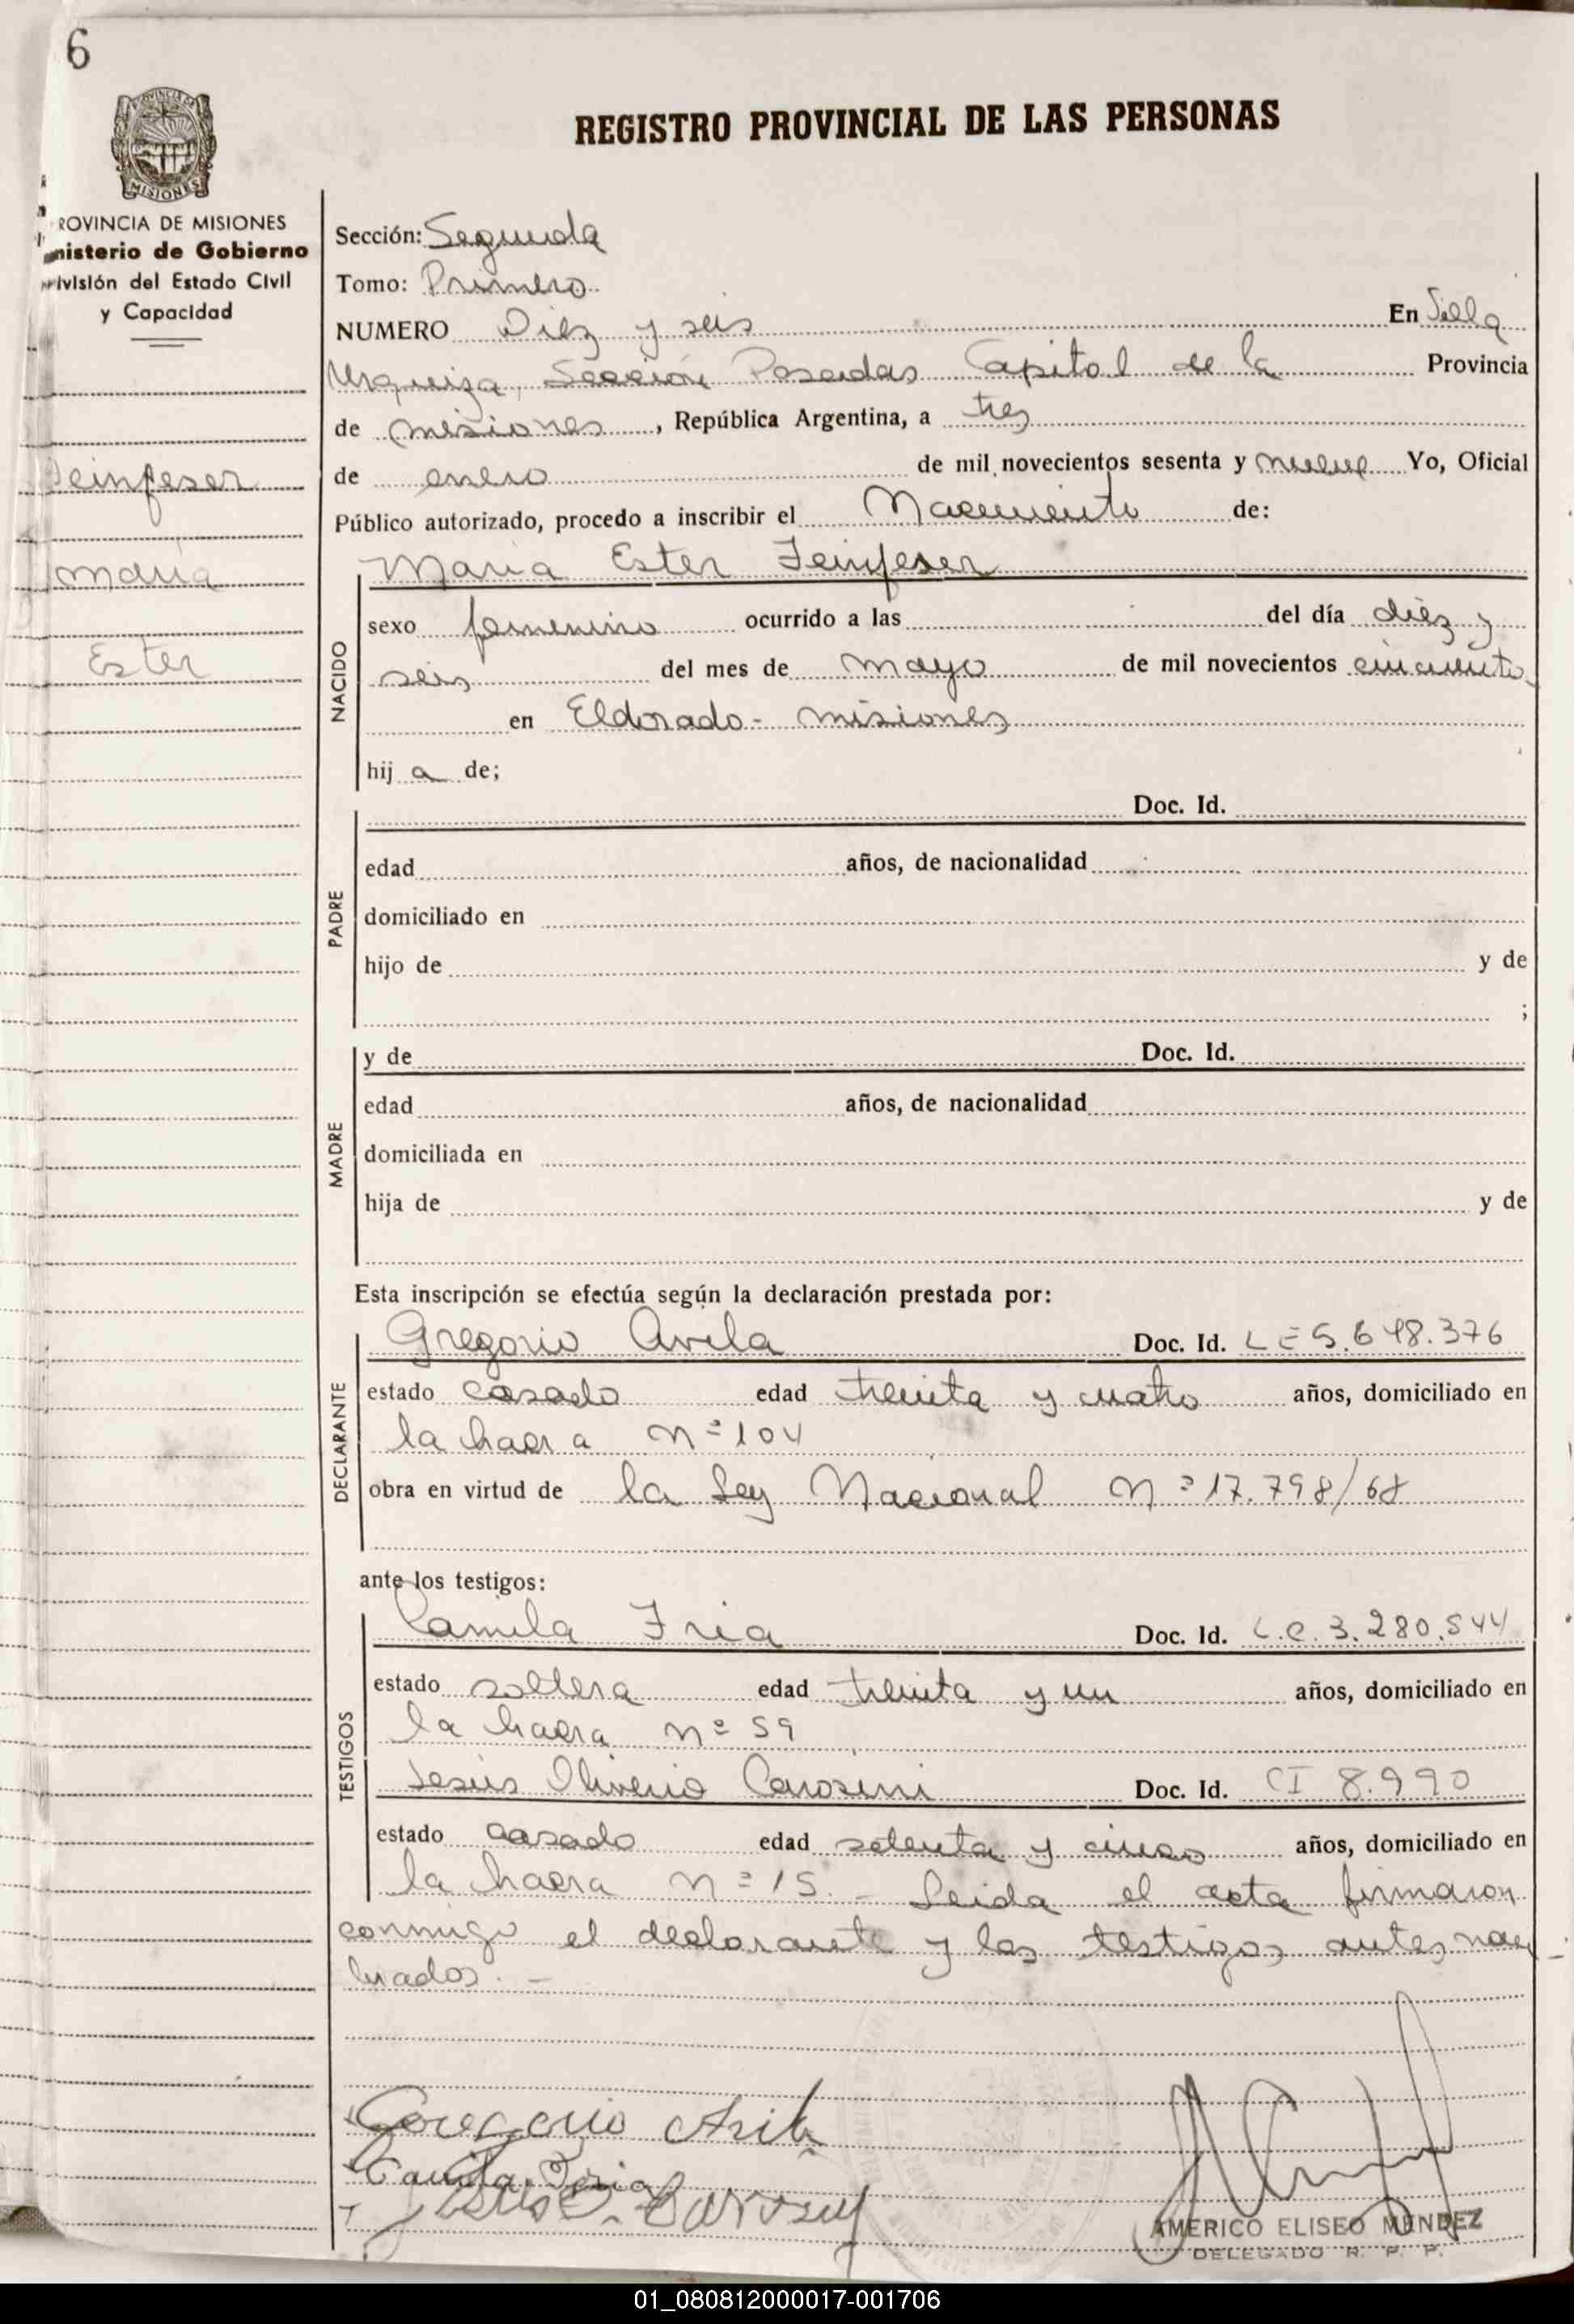 6
PROVINCIA DE
MISIONES
REGISTRO PROVINCIAL DE LAS PERSONAS
ROVINCIA DE MISIONES
nisterio de Gobierno
ivisión del Estado Civil
y Capacidad
Feinfeser
Maria
Ester
Sección: Segunda
Tomo: Primero
NUMERO Diez y seis En Villa
Urquiza, Sección Posadas Capital de la Provincia
de Misiones, República Argentina, a tres
de enero de mil novecientos sesenta y nueve Yo, Oficial
Público autorizado, procedo a inscribir el Nacimiento de:
Maria Ester Feinfeser
NACIDO
sexo femenino ocurrido a las del día diez y
seis del mes de mayo de mil novecientos cincuenta
en Eldorado - Misiones
hij a de;
PADRE
Doc. Id.
edad años, de nacionalidad
domiciliado en
hijo de y de
;
MADRE
y de Doc. Id.
edad años, de nacionalidad
domiciliada en
hija de y de
Esta inscripción se efectúa según la declaración prestada por:
DECLARANTE
Gregorio Avila Doc. Id. LE 5.648.376
estado casado edad treinta y cuatro años, domiciliado en
la hacra nº 104
obra en virtud de la Ley Nacional Nº 17.798/68
ante los testigos:
TESTIGOS
Camila Fria Doc. Id. L.C. 3.280.544
estado soltera edad treinta y un años, domiciliado en
la hacra nº 59
Jesús Oliverio Carosini Doc. Id. CI 8.990
estado casado edad setenta y cinco años, domiciliado en
la hacra nº 15. - Leida el acta firmaron
conmigo el declarante y los testigos antes nom-
brados. -
Goregorio Avila
Camila Fria
AMERICO ELISEO MENDEZ
DELEGADO R. P. P.
01_080812000017-001706